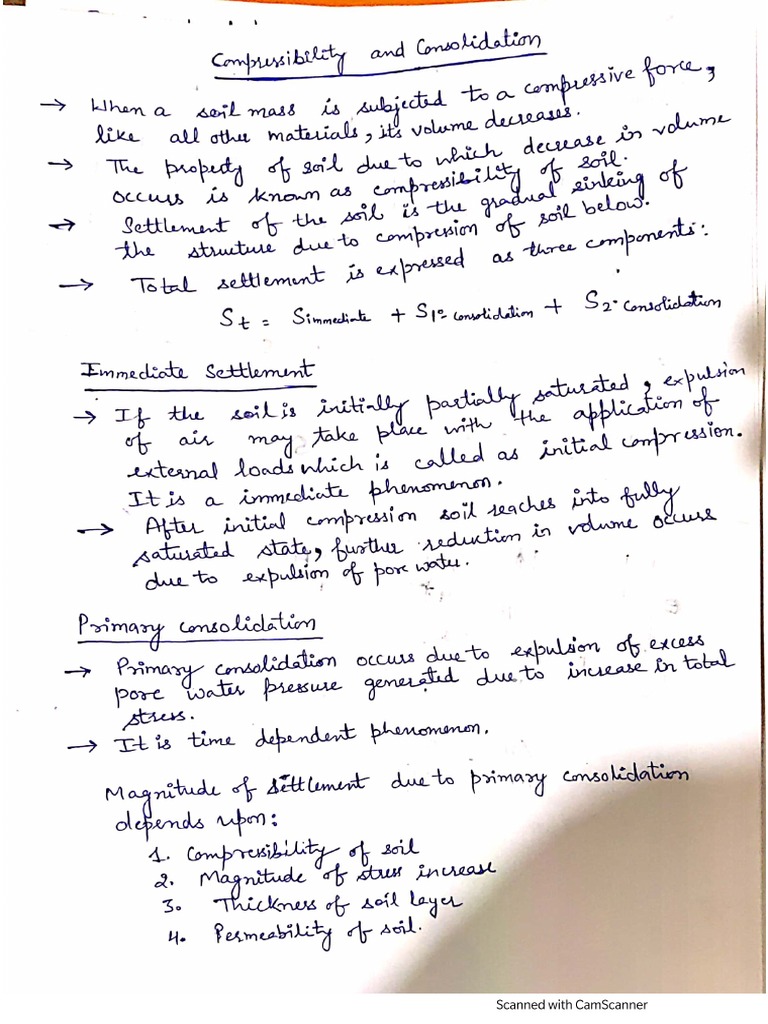 Compressibility and Consolidation
→ When a soil mass is subjected to a compressive force,
like all other materials, its volume decreases.
→ The property of soil due to which decrease in volume
occurs is known as compressibility of soil.
→ Settlement of the soil is the gradual sinking of
the structure due to compression of soil below.
→ Total settlement is expressed as three components:
St = Simmediate + S1° consolidation + S2° consolidation
Immediate Settlement
→ If the soil is initially partially saturated, expulsion
of air may take place with the application of
external loads which is called as initial compression.
It is a immediate phenomenon.
→ After initial compression soil reaches into fully
saturated state, further reduction in volume occurs
due to expulsion of pore water.
Primary consolidation
→ Primary consolidation occurs due to expulsion of excess
pore water pressure generated due to increase in total
stress.
→ It is time dependent phenomenon.
Magnitude of settlement due to primary consolidation
depends upon:
1. Compressibility of soil
2. Magnitude of stress increase
3. Thickness of soil layer
4. Permeability of soil.
Scanned with CamScanner